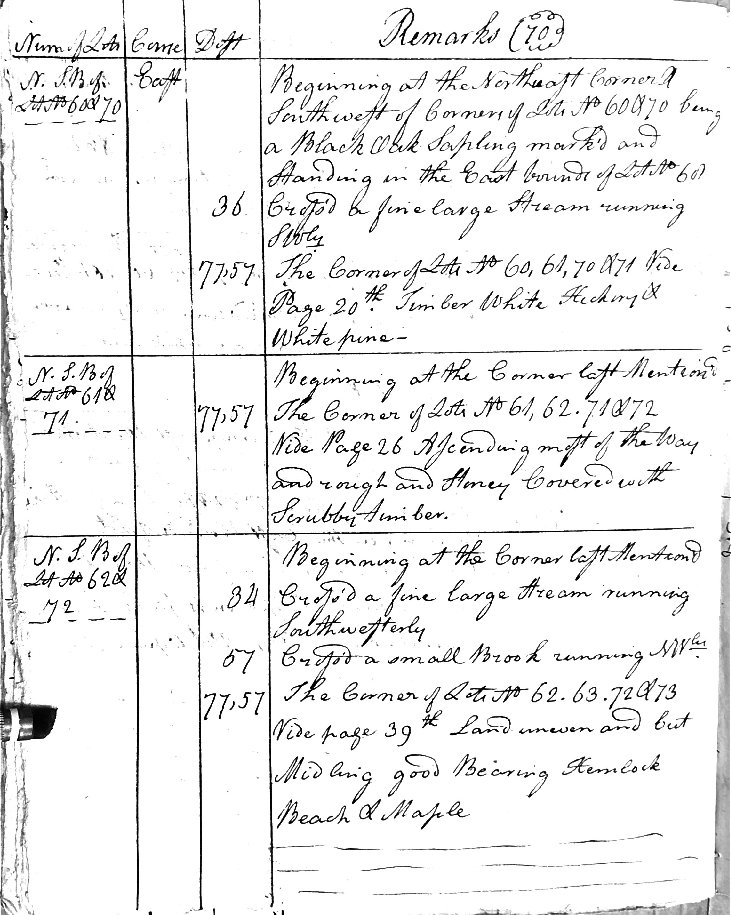 Num of Lots Corse Dist Remarks (70)
N. S. B of East Beginning at the Northeast Corner &
Lot No 60 & 70 Southwest of Corners of Lots No 60 & 70 being
a Black Oak Sapling mark'd and
Standing in the East bounds of Lot No 60
36 Cross'd a fine large Stream running
77,57 The Corner of Lots No 60, 61, 70 & 71 Vide
Page 20th. Timber White Hickory &
White pine –
N. S. B of Beginning at the Corner last Mentiond
Lot No 61 &
71 77,57 The Corner of Lots No 61, 62. 71 & 72
Vide Page 26 Ascending most of the Way
and rough and Stoney Covered with
Scrubby timber.
N. S. B of Beginning at the Corner last Mentiond
Lot No 62 &
72 34 Cross'd a fine large Stream running
Southwesterly
57 Cross'd a small Brook running NWly
77,57 The Corner of Lots No 62. 63. 72 & 73
Vide page 39th Land uneven and but
Midling good Bearing Hemlock
Beach & Maple